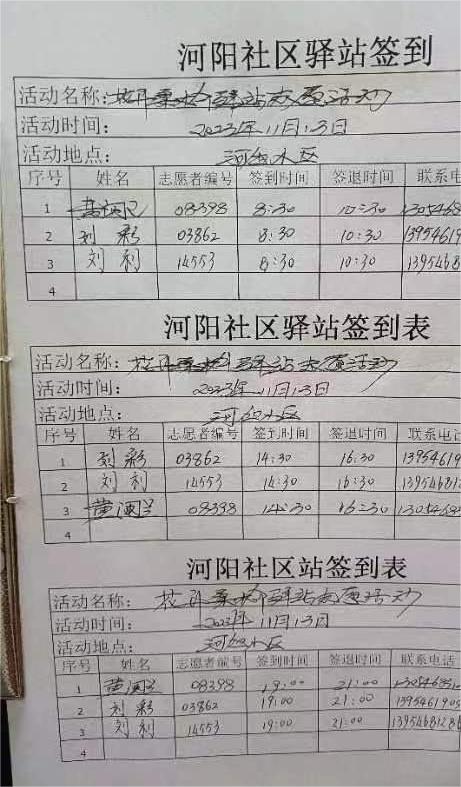 河阳社区驿站签到
活动名称: 牡丹 驿站志愿活动
活动时间: 2023年11月13日
活动地点: 河 小区
序号 姓名 志愿者编号 签到时间 签退时间 联系电
1 黄 08398 8:30 10:30
2 刘彩 03862 8:30 10:30 13954619
3 刘利 14553 8:30 10:30 1395468
4
河阳社区驿站签到表
活动名称: 驿站志愿活动
活动时间: 2023年11月13日
活动地点: 河 小区
序号 姓名 志愿者编号 签到时间 签退时间 联系电话
1 刘彩 03862 14:30 16:30 13954619
2 刘利 14553 14:30 16:30 139546812
3 黄 08398 14:30 16:30
4
河阳社区站签到表
活动名称: 驿站志愿活动
活动时间: 2023年11月13日
活动地点: 河 小区
序号 姓名 志愿者编号 签到时间 签退时间 联系电话
1 黄 08398 19:00 21:00
2 刘彩 03862 19:00 21:00 1395461905
3 刘利 14553 19:00 21:00 1395468128
4